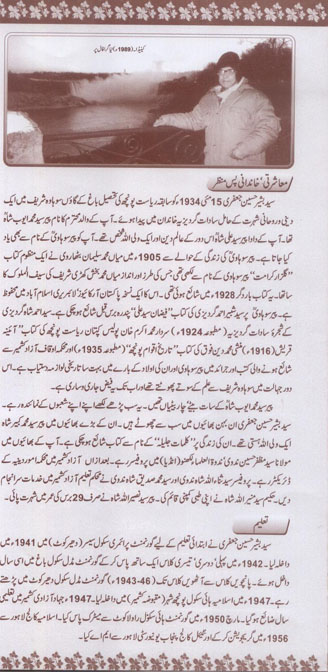 کینیڈا۔ (1989ء) نیاگرا فال پر
معاشرتی / خاندانی پس منظر
سید بشیر حسین جعفری 15 مئی 1934ء کو سابقہ ریاست پونچھ کی تحصیل باغ کے گاؤں سوہاوہ شریف میں ایک
دینی و روحانی شہرت کے حامل سادات گردیزیہ خاندان میں پیدا ہوئے۔ آپ کے والد محترم کا نام پیر سید محمد ایوب شاہ
تھا۔ آپ کے دادا پیر سید علی شاہ اس دور کے عالم دین اور ایک ولی اللہ شخص تھے۔ آپ کو پیر سوہاوی کے نام سے بھی یاد
کیا جاتا ہے۔ پیر سوہاوی کی زندگی کے حوالے سے 1905ء میں میاں محمد سلیمان نے ایک منظوم کتاب
"گلزار کرامت" پیر سوہاوی کے نام سے لکھی تھی جس کی طرز اور انداز میاں محمد بخش کھڑی شریف کی سیف الملوک کا
سا تھا۔ یہ کتاب بار دگر 1928ء میں شائع ہوئی تھی۔ اس کا ایک نسخہ پاکستان آرکائیوز لائبریری اسلام آباد میں محفوظ
ہے۔ پیر سوہاوی پر سید بشیر احمد گردیزی کی کتاب "فیضان سید علی" چند برس قبل شائع ہو چکی ہے۔ سید احمد شاہ گردیزی
کے شجرہ سادات گردیزیہ (مطبوعہ 1924ء) سردار محمد اکرم خان پولیس کپتان ریاست پونچھ کی کتاب "آئینہ
قریش (1916ء) منشی محمد دین فوق کی کتاب "تاریخ اقوام پونچھ" (مطبوعہ 1935ء) اور محکمہ اوقاف آزاد کشمیر سے
شائع ہونے والی کتب اور جرائد میں پیر سوہاوی اور ان کی اولاد کے بارے میں بہت سا تاریخی مواد دستیاب ہے۔ اس
دور جہالت میں سوہاوہ شریف سے علم کے سوتے پھوٹتے تھے اور اب تک یہ فیض جاری و ساری ہے۔
پیر سید محمد ایوب شاہ کے سات بیٹے چار بیٹیاں تھیں۔ یہ سب پڑھے لکھے اپنے اپنے شعبوں کے نمائندہ ہیں۔
سید بشیر حسین جعفری ان بہن بھائیوں میں سب سے چھوٹے ہیں۔ ان کے بڑے بھائیوں میں پیر سید محمد کبیر شاہ
ایک ولی اللہ ہستی تھے۔ ان کی زندگی پر کتاب کے نام سے کتاب شائع ہو چکی ہے۔ آپ کے بھائیوں میں
مولانا سید مظفر حسین ندوی ندوۃ العلماء لکھنؤ (انڈیا) میں پروفیسر رہے۔ بعد ازاں آزاد کشمیر میں محکمہ امور دینیہ کے
ڈائریکٹر رہے۔ پروفیسر سید ثناء اللہ شاہ ندوی اور سید محمد صدیق شاہ ندوی نے محکمہ تعلیم آزاد کشمیر میں خدمات سرانجام
دیں۔ حکیم سید منیر اللہ شاہ نے اپنی طبی کمپنی قائم کی۔ پیر سید نصیر اللہ شاہ نے صرف 29 برس کی عمر میں شہرت پائی۔
تعلیم
سید بشیر حسین جعفری نے ابتدائی تعلیم کے لیے گورنمنٹ پرائمری سکول سیسر (دھیرکوٹ) میں 1941ء میں
داخلہ لیا۔ 1942ء میں پہلی، دوسری، تیسری کلاس ایک ساتھ پاس کر کے گورنمنٹ مڈل سکول باغ میں اسی سال
داخل ہوئے۔ پانچویں کلاس سے آٹھویں کلاس تک (46-1943) گورنمنٹ مڈل سکول دھیرکوٹ میں پڑھتے
رہے۔ 1947ء میں اسلامیہ ہائی سکول پونچھ شہر (مقبوضہ کشمیر) میں داخلہ لیا۔ 1947ء جہاد آزادی کشمیر میں تعلیمی
سال ضائع ہو گیا۔ مارچ 1950ء میں گورنمنٹ ہائی سکول راولاکوٹ سے میٹرک پاس کیا۔ اسلامیہ کالج لاہور سے
1956ء میں گریجویشن کر کے اورینٹل کالج پنجاب یونیورسٹی لاہور سے ایم اے کیا۔